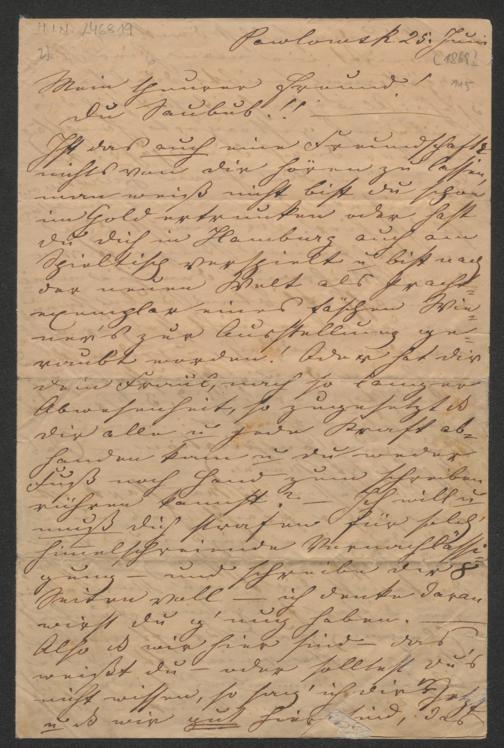 H.I.N. 146819
Pawlowsk 25. Juni
[1869]
Mein theurer Freund!
Du Saubub!!
Ist das auch eine Freundschaft
nichts von dir hören zu lassen,
man weiß nicht bist du schon
im Gold ertrunken oder hast
du dich in Hamburg auch am
Spieltisch verspielt u bist nach
der neuen Welt als Pracht-
exemplar eines fäschen Wie-
ners zur Ausstellung ge-
raubt worden! Oder hat dir
dein Frauerl, nach so langer
Abwesenheit, so zugesetzt
dir alle u jede Kraft ab-
handen kam u du weder
Fuß noch Hand zum schreiben
rühren kannst? — Ich will u
muß dich strafen für solch'
himelschreiende Vernachlässi-
gung — und schreibe dir 8
Seiten voll — ich denke daran
wirst du g'nug haben. —
Also wir hier sind — das
weißt du — oder solltest du's
nicht wissen, so sag' ich dir's jetzt
u wir gut hier sind, das